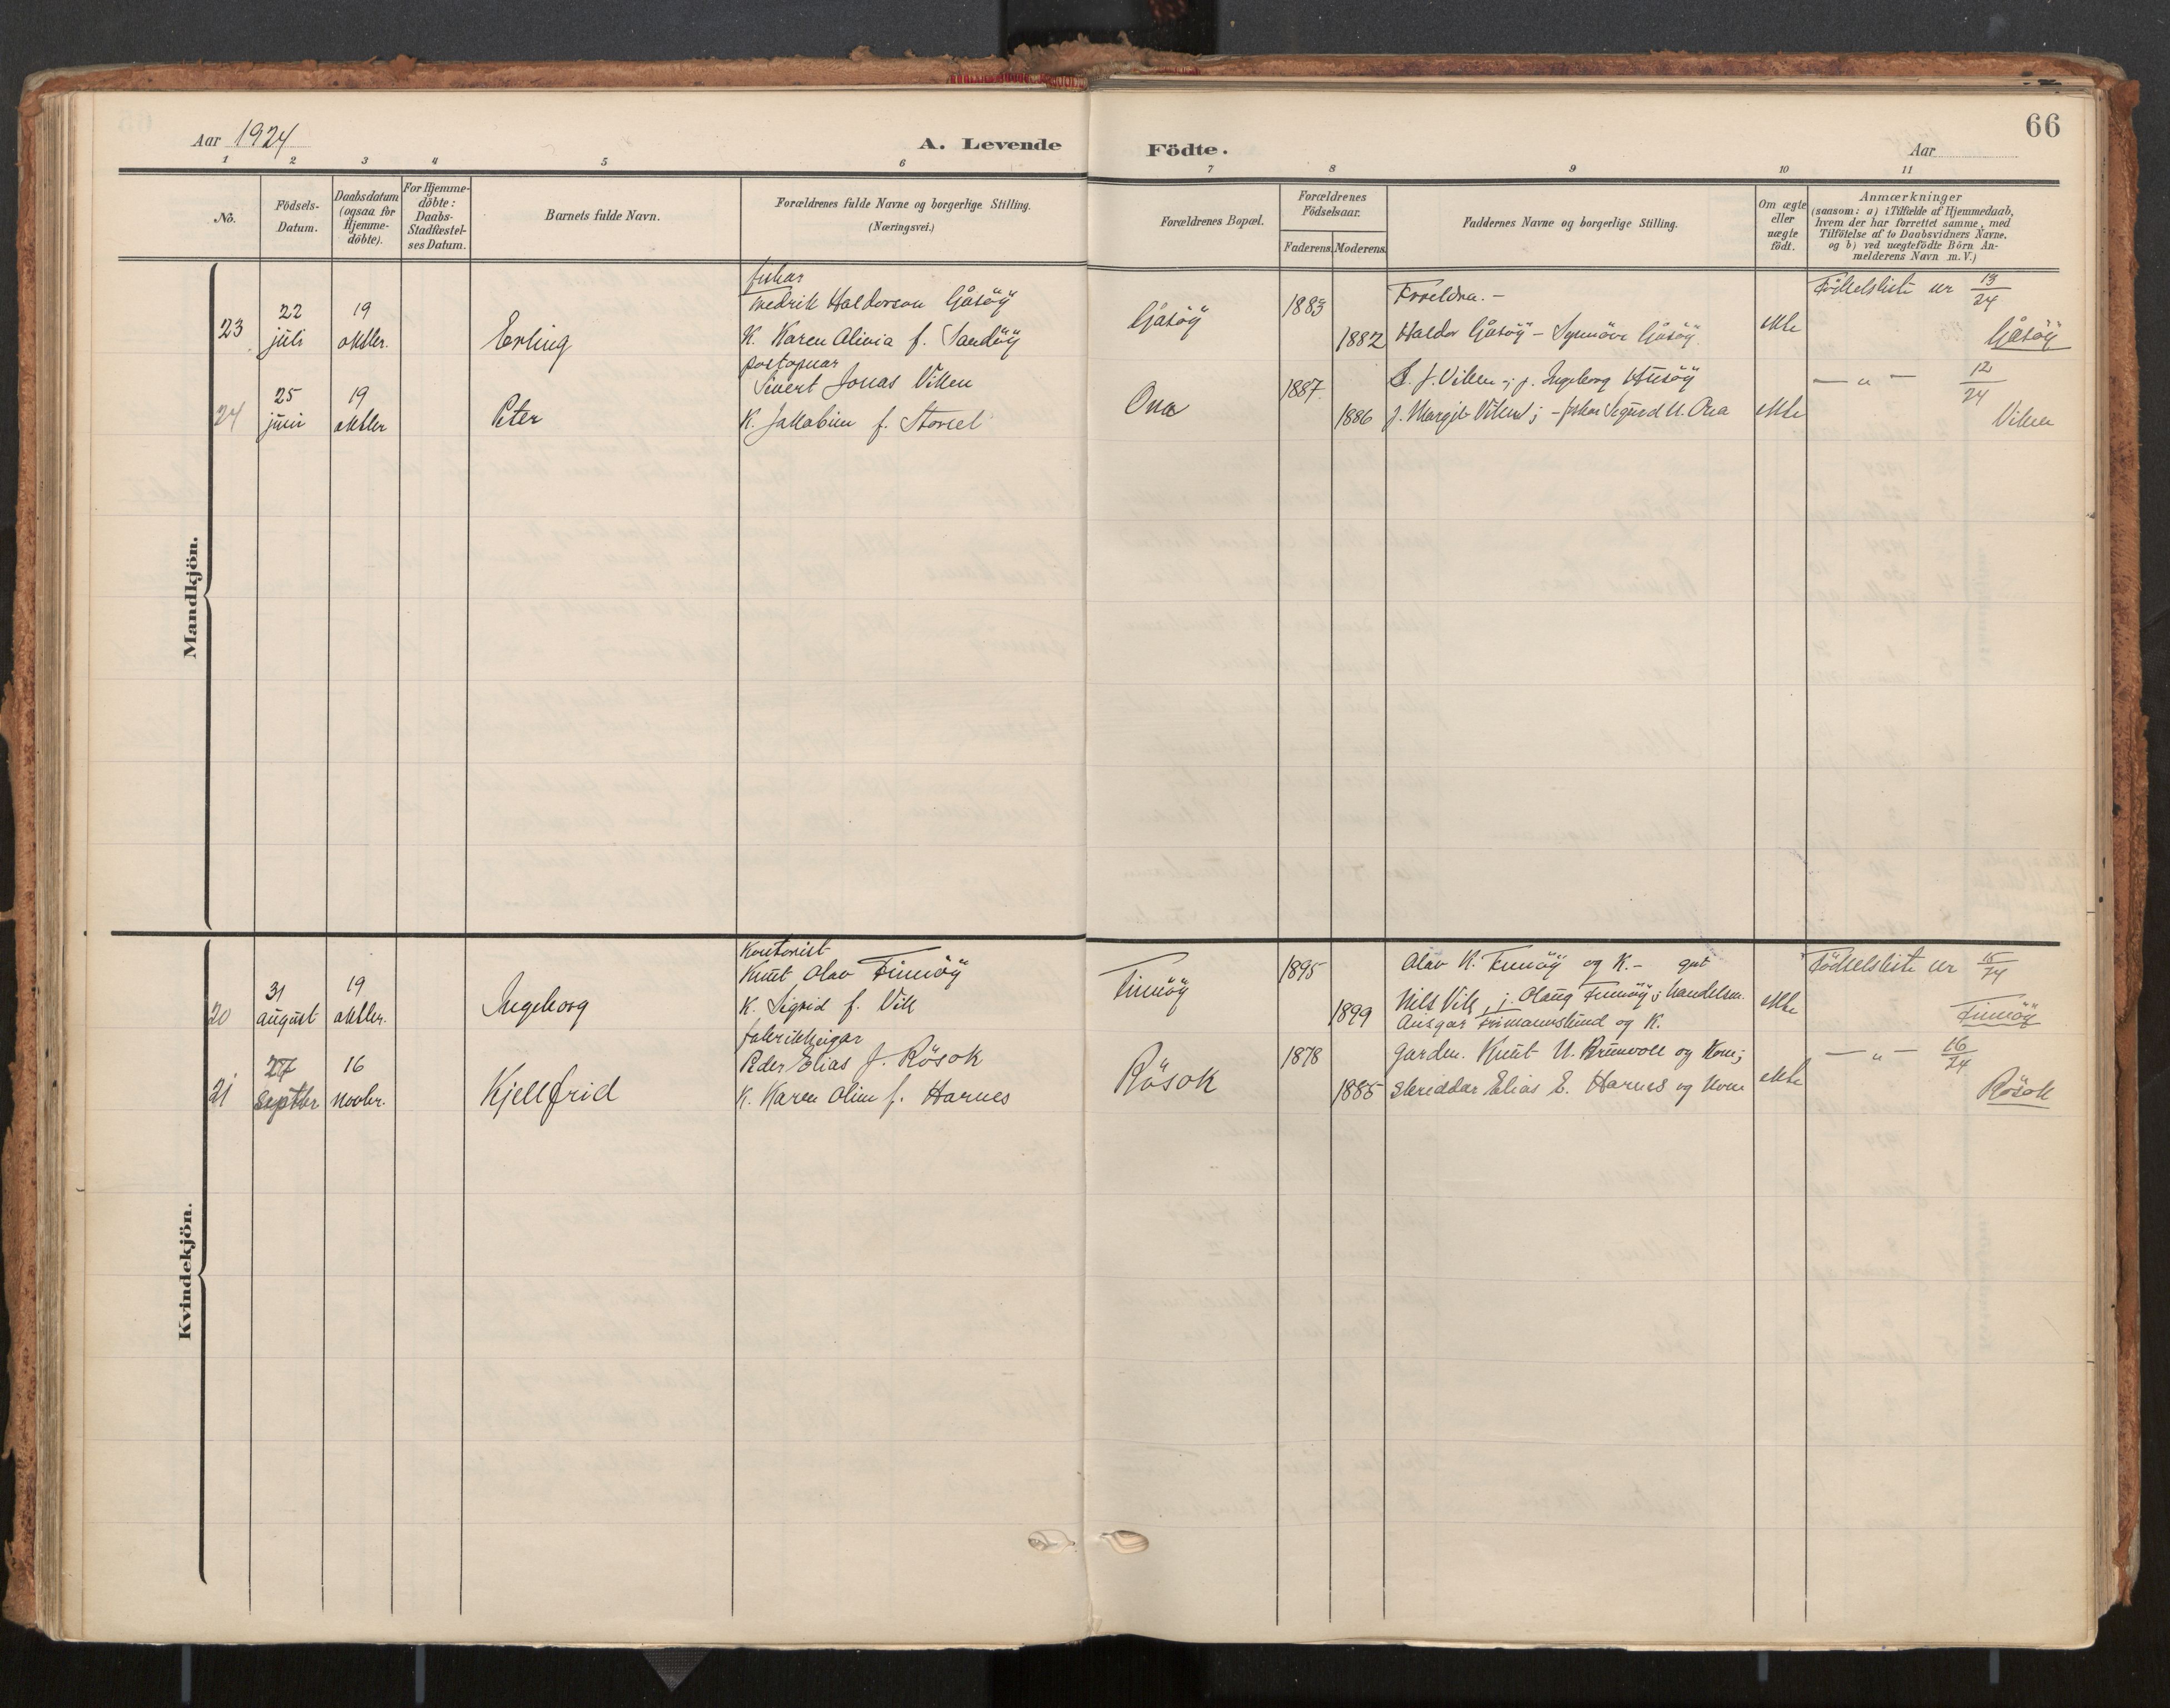 66
Aar 1924
A. Levende Födte.
Aar
1 2 3 4 5 6 7 8 9 10 11
No.
Födsels-
Datum.
Daabsdatum
(ogsaa for
Hjemme-
döbte).
For Hjemme-
döbte:
Daabs-
Stadfæstel-
ses Datum.
Barnets fulde Navn.
Forældrenes fulde Navne og borgerlige Stilling.
(Næringsvei.)
Forældrenes Bopæl.
Forældrenes
Födselsaar.
Faderens. Moderens.
Faddernes Navne og borgerlige Stilling.
Om ægte
eller
uægte
födt.
Anmærkninger
(saasom: a) i Tilfælde af Hjemmedaab,
hvem der har forrettet samme, med
Tilföielse af to Daabsvidners Navne.
og b) ved uægtefödte Börn An-
melderens Navn m. V.)
Mandkjön.
23
22
juli
19
oktbr.
Erling
fiskar
Fredrik Halderson Gåsöy
K. Karen Olivia f. Sandöy
Gåsöy
1883
1882
Foreldra. -
Haldor Gåsöy - Synnöve Gåsöy
ekte
Födselsliste nr 13/24
Gåsöy
24
25
juni
19
oktbr
Peter
postopnar
Sivert Jonas Viken
K. Jakobine f. Storset
Ona
1887.
1886
S. J. Viken; j. Ingeborg Husöy
j. Margit Viken; - fiskar Sigurd U. Ona
ekte
— " — 12/24
Viken
Kvindekjön.
20
31
august
19
oktbr.
Ingeborg
Kontorist
Knut Olav Finnöy
K. Sigrid f. Vik
Finnöy
1895
1899
Olav K. Finnöy og K. - gut
Nils Vik, j. Olaug Finnöy; handelsm.
Ansgar Frimannslund og K.
ekte
Födselsliste nr 15/24
Finnöy
21
27
septbr
16
novbr.
Kjellfrid
fabrikkeigar
Peder Elias J. Rösok
K. Karen Oline f. Harnes
Rösok
1878
1885
gardm. Knut U. Brunvoll og Kone;
skreddar Elias E. Harnes og kone
ekte
— " — 16/24
Rösok